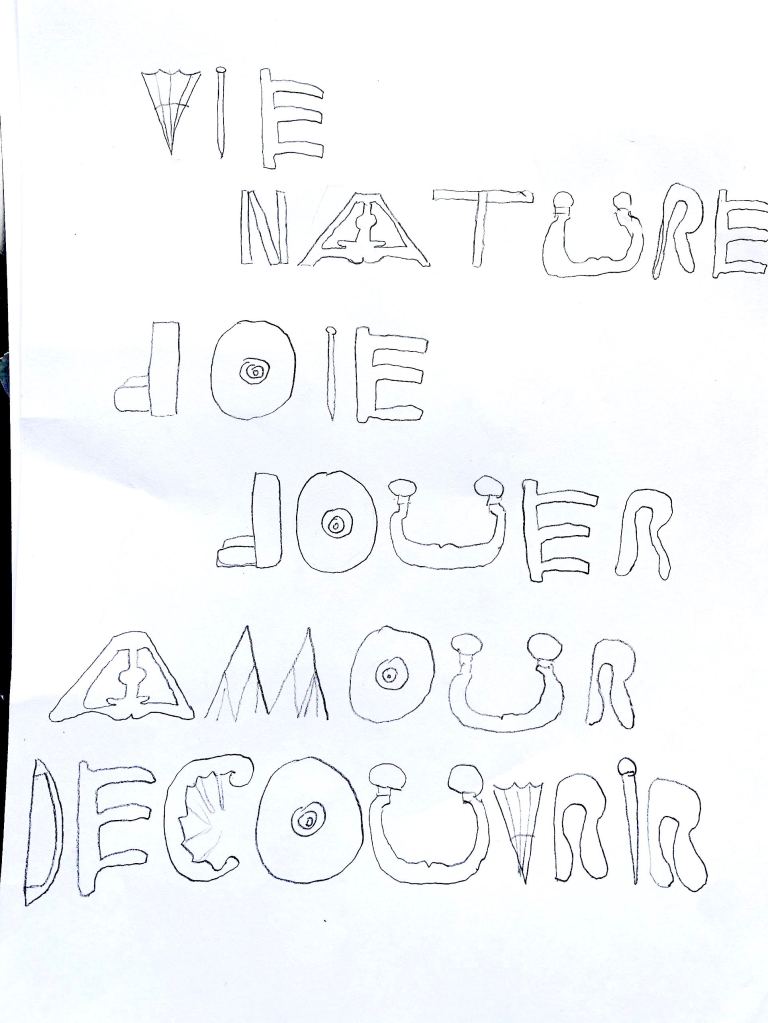 VIE
NATURE
JOIE
JOUER
AMOUR
DECOUVRIR